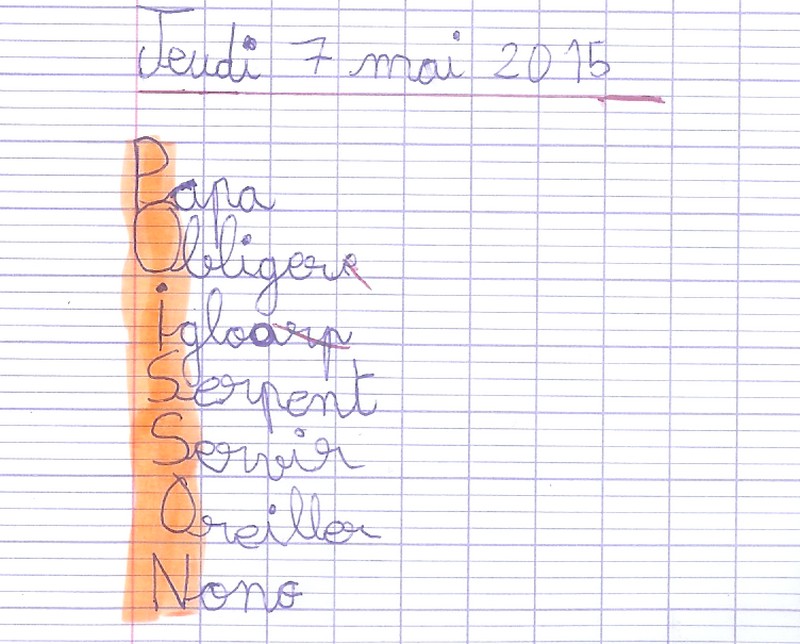 Jeudi 7 mai 2015
Papa
Obliger
igloo
Serpent
Servir
Oreiller
Nono